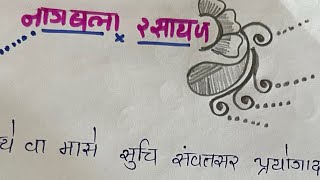 नागबला रसायन
थे वा मासे सुचि संवत्तसर प्रयोगाद